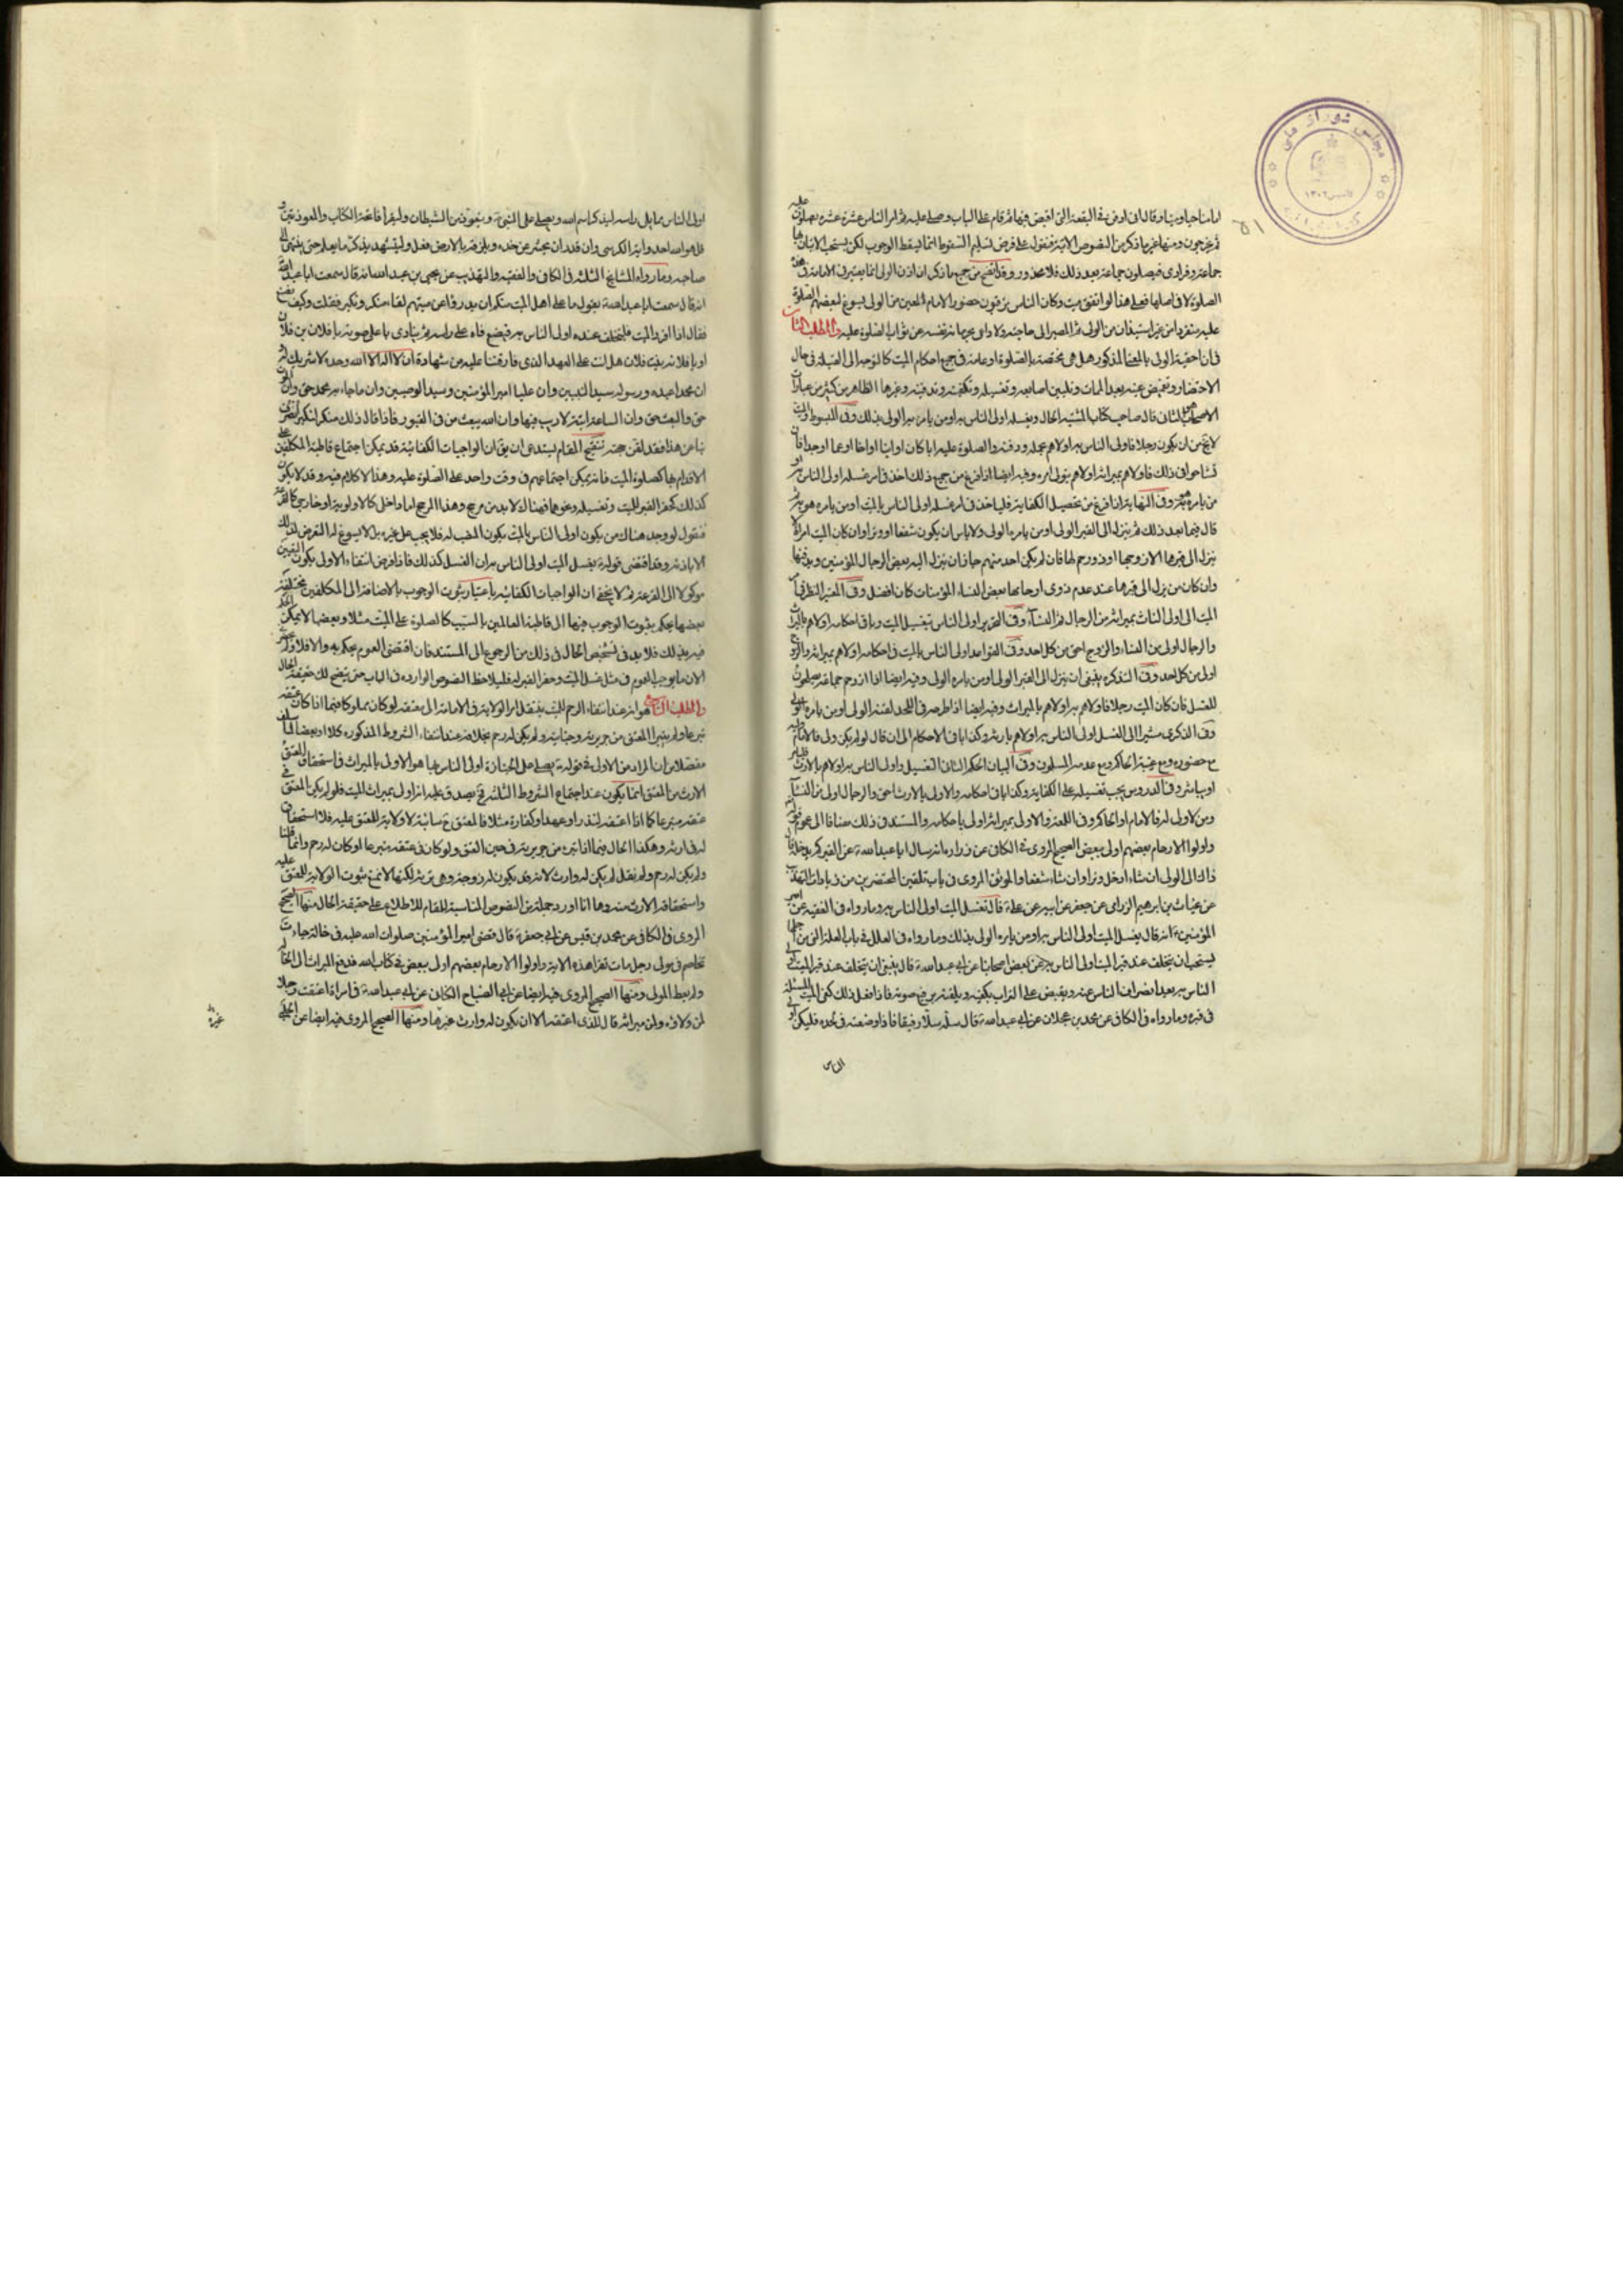 مجلس شورای ملی
۵۱
امامنا حيا وميتا وقال ان اوفى فى البقعة التى اقبض فيها ثم قام على الباب وصلى عليه ثم امر الناس عشرة عشرة يصلون عليه
ثم يخرجون ومنها غير ما ذكر من النصوص الاتية فنقول على فرض تسليم السقوط انما يسقط الوجوب لكن يستحب الاتيان بها
جماعة وفرادى فيصلون جماعة بعد ذلك فلا محذور وقد اتضح من جميع ما ذكر ان اذن الولى انما يعتبر فى الامامة فى هذه
الصلوة لا فى اصلها فعلى هذا لو اتفق ميت وكان الناس يرقبون حضور الامام المعين من الولى يسوغ لبعضهم الصلوة
عليه منفردا من غير استيذان من الولى ثم المصير الى حاجته ولا داعى لحرمانه نفسه عن ثواب الصلوة عليه والمطلب الثامن
فى ان احقية الولى بالمعنى المذكور هل هى مختصة بالصلوة او عامة فى جميع احكام الميت كالتوجه الى القبلة فى حال
الاحتضار وتغميض عينيه بعد الممات وتليين اصابعه وتغسيله وتكفينه وتدفينه وغيرها الظاهر من كثير من عبارات
الاصحاب هو الثانى قال صاحب كتاب المشيد الحال ويغسله اولى الناس به او من يامره به الولى بذلك وفى المبسوط الميت
لا يخ من ان يكون رجلا فاولى الناس به اولاهم بحمله ودفنه والصلوة عليه ابا كان او ابنا او اخا او عما او جدا فان
تشاحوا فى ذلك فاولاهم بميراثه اولاهم بتولى امره وفيه ايضا اذا فرغ من جميع ذلك اخذ فى امر غسله اولى الناس به او
من يامره هو به وفى النهاية اذا فرغ من تحصيل الكفاية فلياخذ فى امر غسله اولى الناس بالميت او من يامره هو به ثم
قال فيما بعد ذلك ثم ينزله الى القبر الولى او من يامره الولى ولا باس ان يكون شفعا او وترا وان كان الميت امراة لا
ينزل الى قبرها الا زوجها او ذو رحم لها فان لم يكن احد منهم جاز ان ينزل اليه بعض الرجال المؤمنين ويدفنها
وان كان من ينزل الى قبرها عند عدم ذوى ارحامها بعض النساء المؤمنات كان افضل وفى المعتبر النظر فى
الميت الى اولى الناس بميراثه من الرجال ثم النساء وفى التحرير اولى الناس بتغسيل الميت وباقى احكامه اولاهم بالميراث
والرجال اولى من النساء والزوج احق من كل احد وفى القواعد اولى الناس بالميت فى احكامه اولاهم بميراثه والزوج
اولى من كل احد وفى التذكرة ينبغى ان ينزل الى القبر الولى او من يامره الولى وفيه ايضا اذا ازدحم جماعة يصلحون
للغسل فان كان الميت رجلا فاولاهم به اولاهم بالميراث وفيه ايضا اذا طرحه فى اللحد لقنه الولى او من يامره الولى
وفى الذكرى مشيرا الى الغسل اولى الناس به اولاهم بارثه وكذا باقى الاحكام الى ان قال لو لم يكن ولى فالامام وليه
مع حضوره ومع غيبته الحاكم ومع عدمه المسلمون وفى البيان الحكم الثانى التغسيل واولى الناس به اولاهم بالارث
اوبيا مثه وفى الدروس يجب تغسيله على الكفاية وكذا باقى احكامه والاولى بالارث احق والرجال اولى من النساء
ومن لا ولى له فالامام او الحاكم وفى اللمعة والاولى بميراثه اولى باحكامه والمستند فى ذلك مضافا الى عموم قوله
واولوا الارحام بعضهم اولى ببعض الصحيح المروى فى الكافى عن زرارة انه سال ابا عبد الله ع عن القبر كم يدخله قال
ذاك الى الولى ان شاء ادخل وترا وان شاء شفعا والموثق المروى فى باب تلقين المحتضرين من زيادات التهذيب
عن غياث بن ابراهيم الرزامى عن جعفر عن ابيه عن على ع قال يغسل الميت اولى الناس به وما رواه فى الفقيه عن امير
المؤمنين ع انه قال يغسل الميت اولى الناس به او من يامره الولى بذلك وما رواه فى العلل فى باب العلة التى من اجلها
يستحب ان يتخلف عند قبر الميت اولى الناس به عن بعض اصحابنا عن ابى عبد الله ع قال ينبغى ان يتخلف عند قبر الميت اولى
الناس به بعد انصراف الناس عنه ويقبض على التراب بكفيه ويلقنه برفيع صوته فاذا فعل ذلك كفى الميت المسئلة
فى قبره وما رواه فى الكافى عن محمد بن عجلان عن ابى عبد الله ع قال سله سلا رفيقا فاذا وضعته فى لحده فليكن اولى
الناس
اولى الناس مما يلى راسه ليذكر اسم الله ويصلى على النبى ص ويتعوذ من الشيطان وليقرا فاتحة الكتاب والمعوذتين و
قل هو الله احد واية الكرسى وان قدر ان يحسر عن خده ويلزقه بالارض فعل وليشهد ويذكر ما يعلم حتى ينتهى الى
صاحبه وما رواه المشايخ الثلثة فى الكافى والفقيه والتهذيب عن يحيى بن عبد الله انه قال سمعت ابا عبد الله
انه قال سمعت ابا عبد الله ع يقول ما على اهل الميت منكم ان يدرؤا عن ميتهم لقاء منكر ونكير فقلت وكيف نصنع
فقال اذا افرد الميت فليتخلف عنده اولى الناس به فيضع فاه على راسه ثم ينادى باعلى صوته يا فلان بن فلان
او يا فلانة بنت فلان هل انت على العهد الذى فارقتنا عليه من شهادة ان لا اله الا الله وحده لا شريك له و
ان محمدا عبده ورسوله سيد النبيين وان عليا امير المؤمنين وسيد الوصيين وان ما جاء به محمد حق وان الموت
حق والبعث حق وان الساعة اتية لا ريب فيها وان الله يبعث من فى القبور فاذا قال ذلك منكر لنكير انصرف
بنا عن هذا فقد لقن حجته تنقيح المقام يستدعى ان يق ان الواجبات الكفائية قد يمكن اجتماع قاطبة المكلفين على
الاقدام بها كصلوة الميت فانه يمكن اجتماعهم فى وقت واحد على الصلوة عليه وهذا لا كلام فيه وقد لا يكون
كذلك كحفر القبر للميت وتغسيله ونحوهما فهناك لا بد من مرجح وهذا المرجح اما داخلى كالاولوية او خارجى كالقرعة
فنقول لو وجد هناك من يكون اولى الناس بالميت يكون المنصب له فلا يجب على غيره بل لا يسوغ له التعرض لذلك
الا باذنه وقد اقتضى قوله ع يغسل الميت اولى الناس به ان الغسل كذلك فاذا فرض انتفاء الاولى يكون التعيين
موكولا الى القرعة ثم لا يخفى ان الواجبات الكفائية باعتبار ثبوت الوجوب بالاضافة الى المكلفين مختلفة
بعضها يحكم بثبوت الوجوب فيها الى قاطبة العالمين بالسبب كالصلوة على الميت مثلا وبعضها لا يمكن الحكم
فيه بذلك فلا بد فى تشخيص الحال فى ذلك من الرجوع الى المستند فان اقتضى العموم يحكم به والا فلا ولم نجد
الان ما يوجب العموم فى مثل غسل الميت وحفر القبر له فليلاحظ النصوص الواردة فى الباب حتى يتضح لك حقيقة الحال
والمطلب التاسع هو انه عند انتفاء الرحم للميت ينتقل امر الولاية فى الامامة الى معتقه لو كان مملوكا فيما اذا كان عتقه
تبرعا ولم يتبرا المعتق من جريرته وجنايته ولم يكن له رحم بخلافه عند انتفاء الشروط المذكورة كلا او بعضا لما سلف
مفصلا من ان المراد من الاولى فى قوله ع يصلى على الجنازة اولى الناس بها هو الاولى بالميراث فى استحقاق المعتق
الارث من المعتق انما يكون عند اجتماع الشروط الثلثة فح يصدق عليه انه اولى بميراث الميت فلو لم يكن المعتق فى
عتقه متبرعا كما اذا اعتقه لنذر او عهد او كفارة مثلا فالمعتق ح سائبة لا ولاية للمعتق عليه فلا استحقاق
له فى ارثه وهكذا الحال فيما اذا تبرء من جريرته فى حين العتق ولو كان فى عتقه متبرعا او كان له رحم وانما قلنا
ولم يكن له رحم ولم نقل لم يكن له وارث لانه قد يكون له زوجة وهى ترثه لكنها لا تمنع ثبوت الولاية للمعتق عليه
واستحقاقه الارث منه وها انا اورد جملة من النصوص المناسبة للمقام للاطلاع على حقيقة الحال منها الصحيح
المروى فى الكافى عن محمد بن قيس عن ابى جعفر ع قال قضى امير المؤمنين صلوات الله عليه فى خالة جاءت
تخاصم فى مولى رجل مات فقرا هذه الاية واولوا الارحام بعضهم اولى ببعض فى كتاب الله فدفع الميراث الى الخالة
ولم يعط المولى ومنها الصحيح المروى فيه ايضا عن ابى الصباح الكنانى عن ابى عبد الله ع فى امراة اعتقت رجلا
لمن ولاؤه ولمن ميراثه قال للذى اعتقه الا ان يكون له وارث غيرها ومنها الصحيح المروى فيه ايضا عن الحلبى